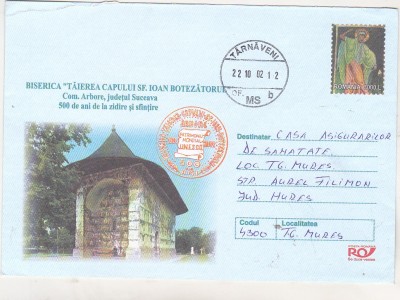 BISERICA "TĂIEREA CAPULUI SF. IOAN BOTEZĂTORUL"
Com. Arbore, județul Suceava
500 de ani de la zidire și sfințire
TÂRNĂVENI
22 10 02 12
OF. MS b
ROMANIA
Destinatar CASA ASIGURARILOR
DE SANATATE.
LOC. TG. MURES.
STR AUREL FILIMON
JUD. MURES
Codul Localitatea
4300 TG. MURES